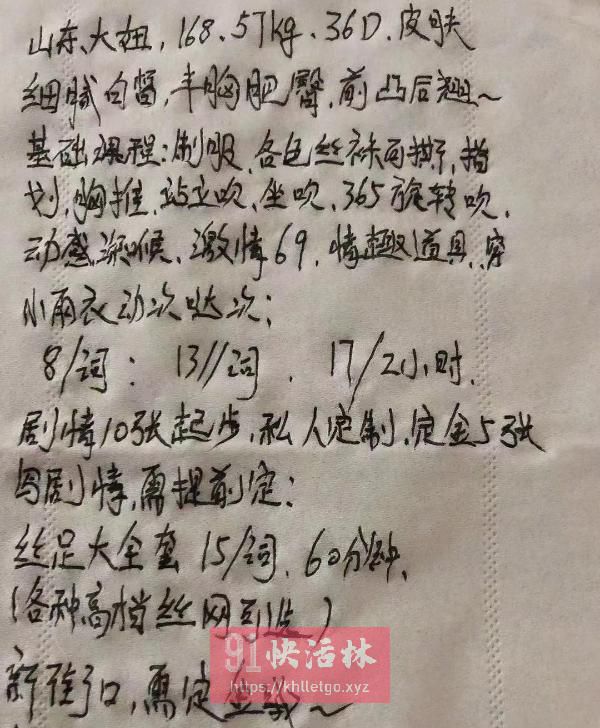 山东、大妞,168.57kg、36D.皮肤
细腻白皙,丰胸肥臀,前凸后翘~
基础课程:制服,各色丝袜可撕,指
划,胸推,站立吹、坐吹、365旋转吹,
动感深喉、激情69,情趣道具,穿
小雨衣动次哒次;
8/词: 13//词. 17/2小时.
剧情10张起步,私人定制,定金5张
写剧情,需提前定:
丝足大全套 15/词.60分钟.
(各种高档丝网)
新街口,需定金~
91快活林
https://khlletgo.xyz